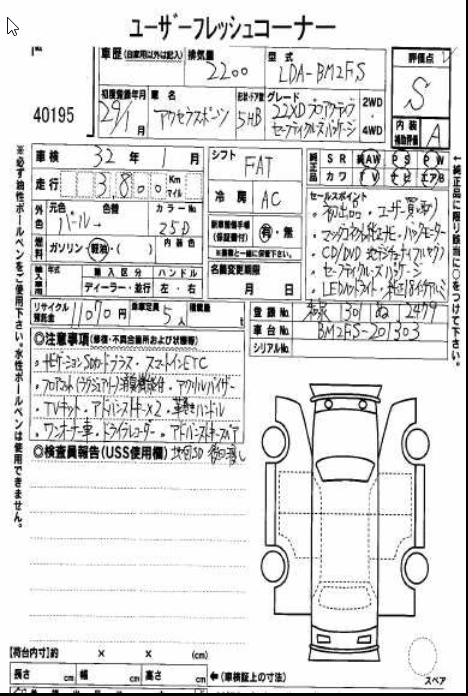 ユーザーフレッシュコーナー
40195
車歴 (自家用以外は記入)
排気量 2200
型式 LDA-BM2FS
評価点 S
初度登録年月 29/1月
車名 アクセラスポーツ
形状・ドア数 5HB
グレード 22XDプロアクティブ
セーフティクルーズパッケージ
2WD
・
4WD
内装補助評価 A
車検 32年1月
シフト FAT
純正品 SR 純AW PS PW
カワ TV ナビ エアB
走行 3,800 Km マイル
冷房 AC
セールスポイント
外色 元色 パール 色替 カラーNo. 25D
・CD/DVD
新車整備手帳(保証書付) 有・無
※書類と一緒に保管下さい。
・セーフティクルーズパッケージ
燃料 ガソリン・軽油・( ) 内装色
・LEDヘッドライト・純正18インチアルミ
輸入車用 年式 輸入区分 ハンドル
ディーラー・並行 左・右
名義変更期限 月 日
リサイクル預託金 11070円
乗車定員 5人
積載量 t
登録No. 301 2479
車台No. BM2FS-201303
シリアルNo.
◎注意事項(修復・不具合箇所および状態等)
・ナビゲーションSDカードプラス・スマートインETC
・フロアマット(ラグジュアリー)消臭機能付・アクリルバイザー
・TVキット・アドバンストキー×2・革巻きハンドル
・ワンオーナー車・ドライブレコーダー・アドバンストキーレス
◎検査員報告(USS使用欄) 地図SD 後日渡し
【荷台内寸】約 × × (cm)
長さ cm 幅 cm 高さ cm ←(車検証上の寸法)
スペア
※必ず油性ボールペンをご使用下さい。水性ボールペンは使用できません。
←純正品に限り該当に○をつけて下さい